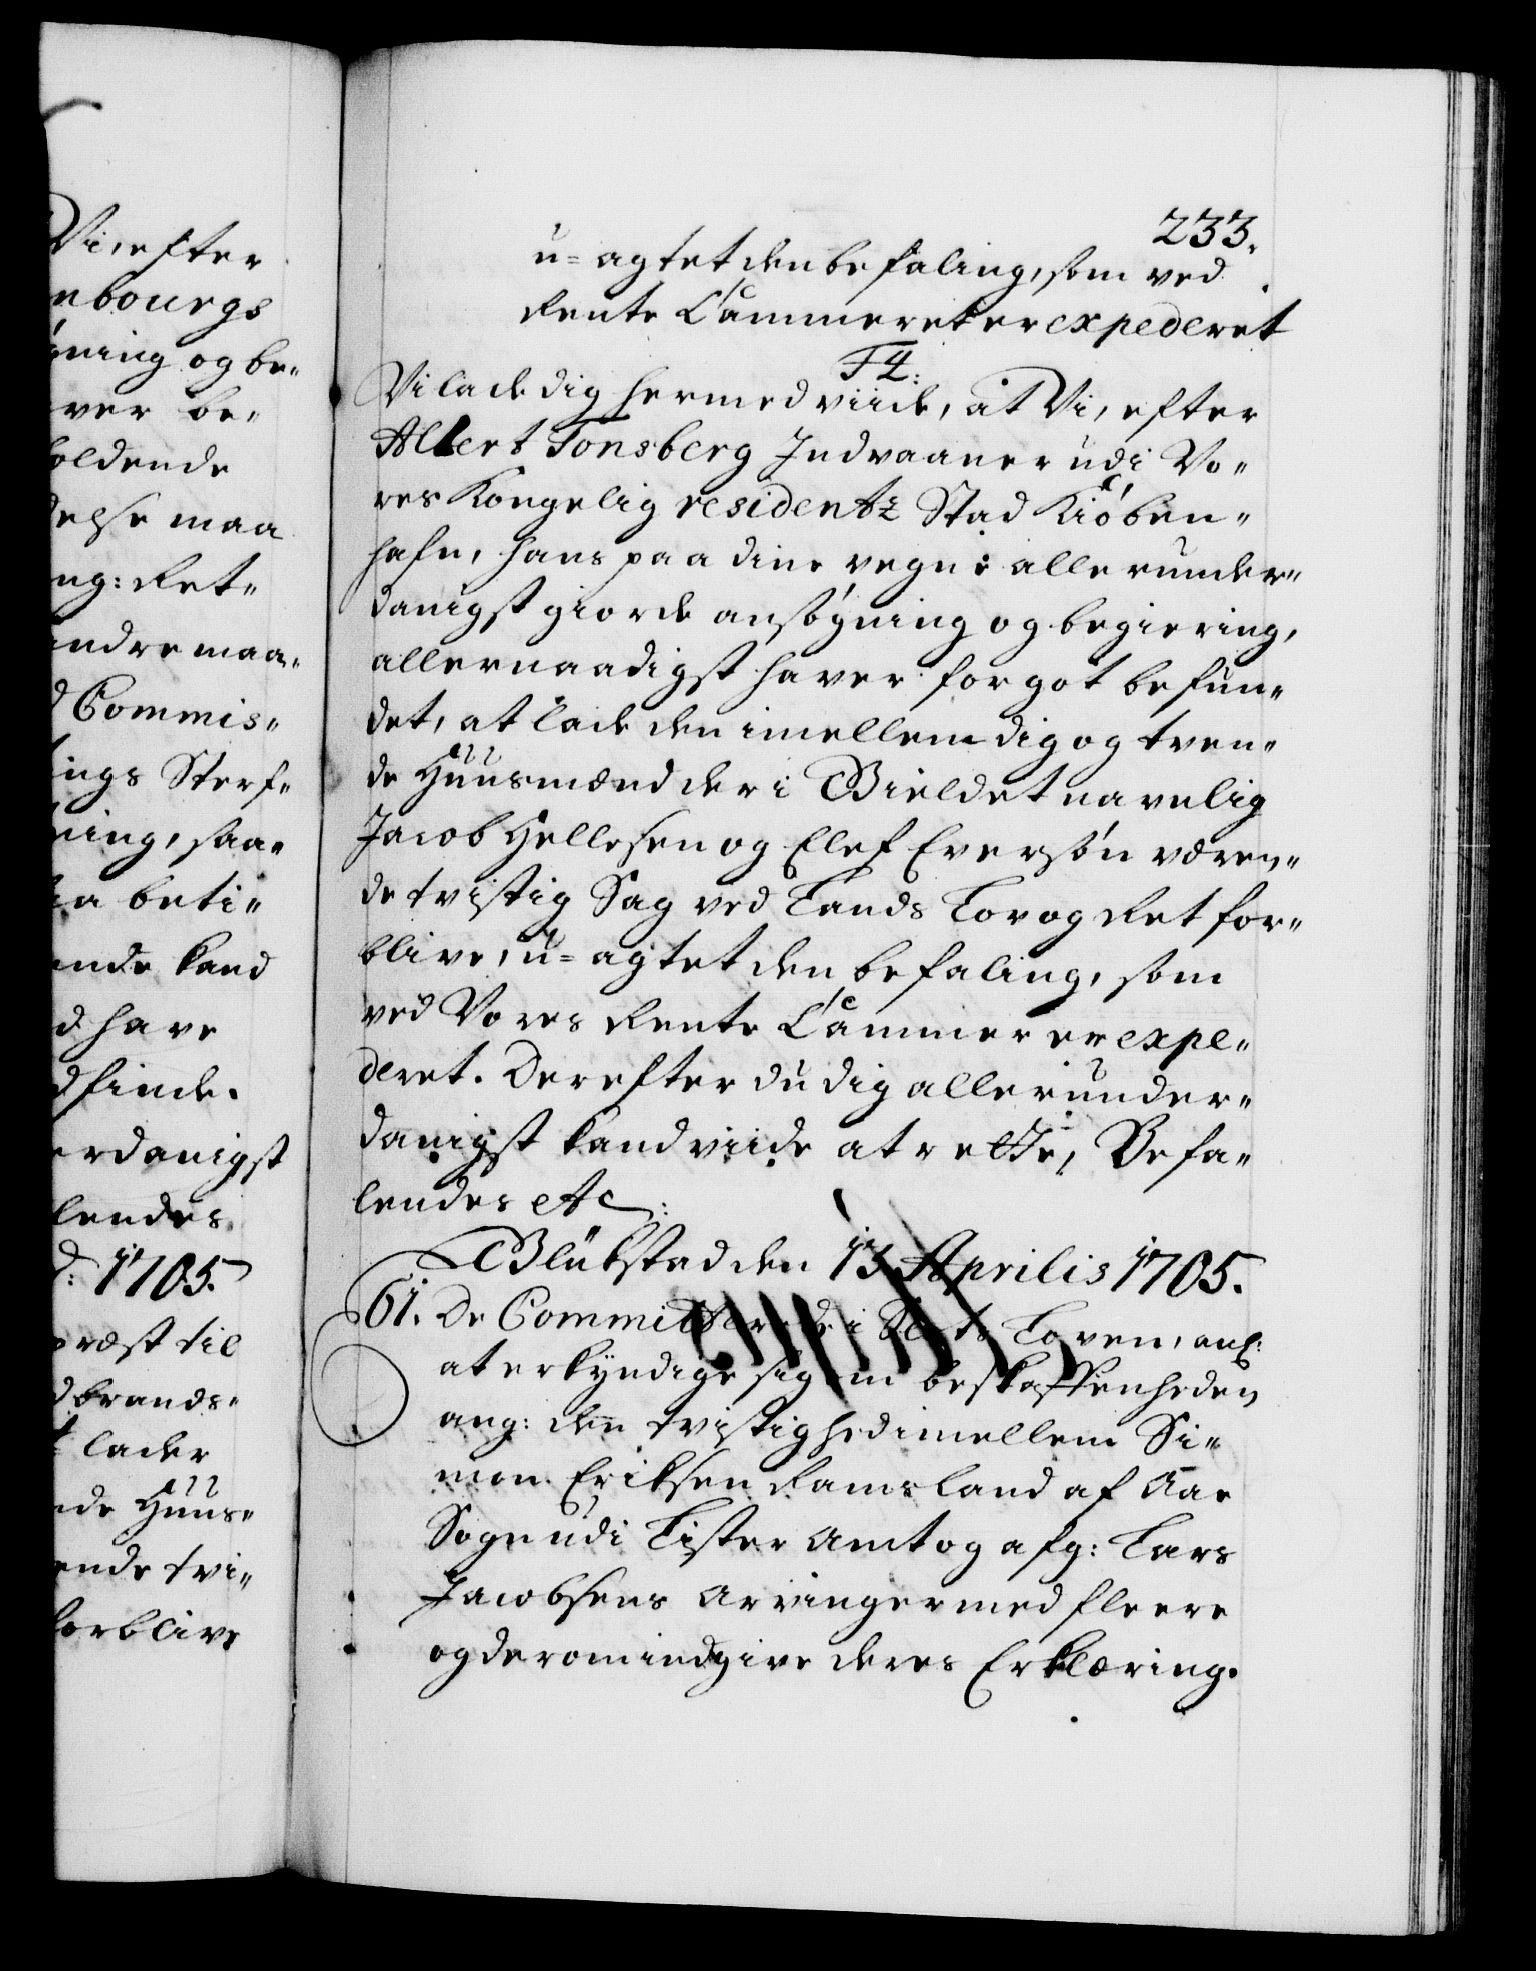 Vi, efter
nbourgs
gning og be„
ver be„
oldende
delse maa
ng: Ret„
andre maa„
d Commis„
ings Sterf„
ning, saa„
aa beti„
ende kand
d have
dfinde.
erdanigst
lendes
d: 1705.
præst til
dbrands„
t lader
nde Huus„
ende tvi„
forblive
233.
u=agtet den befaling, som ved
Rente Cammeret er expederet
F4:
Vi lade dig hermed viide, at Vi, efter
Albert Tonsberg Indvaaner udi Vo„
res Kongelig residentz Stad Kiöben„
hafn, hans paa dine vegne allerunder„
danigst giorde ansögning og begiering,
allernaadigst haver for got befun„
det, at lade den imellem dig og tven„
de Huusmænd der i Gieldet navnlig
Jacob Hellesen og Elef Eversön væren„
de tvistig Sag ved Lands Lov og Ret for„
blive, u=agtet den befaling, som
ved Vores Rente Cammer er expe„
deret. Derefter du dig allerunder„
danigst kand viide at rette, Befa„
lendes etc:
Glükstad den 13 Aprilis 1705.
61. De Committerede i Slots Loven, anl:
at erkyndige sig om beskaffenheden
ang: den tvistighed imellem Si„
mon Eriksen Ramsland af Aae
Sogn udi Lister Amt og afg: Lars
Jacobsens Arvinger med fleere
og derom indgive deres Erklæring.